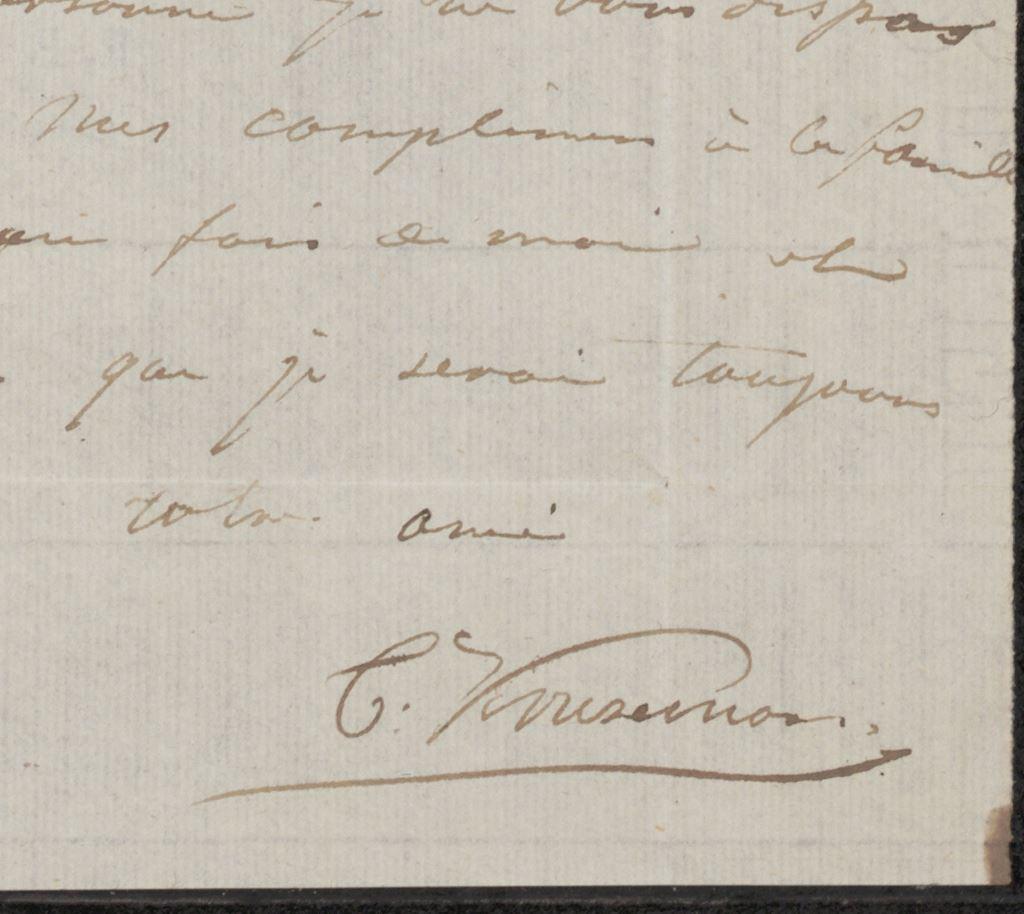 je ne vous dis pas
Mes complimens à la famille
fois de moi et
que je serai toujours
votre ami
C. Kruseman.